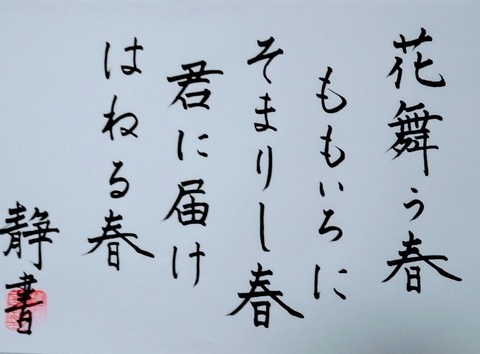 花舞う春
ももいろに
そまりし春
君に届け
はねる春
静書